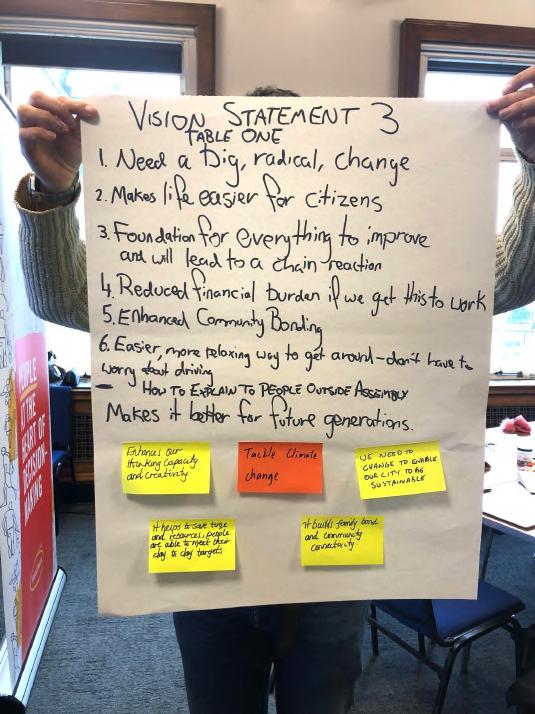 VISION STATEMENT 3
TABLE ONE
1. Need a big, radical, change
2. Makes life easier for citizens
3. Foundation for everything to improve
and will lead to a chain reaction
4. Reduced financial burden if we get this to work
5. Enhanced Community Bonding
6. Easier, more relaxing way to get around - don't have to
worry about driving
HOW TO EXPLAIN TO PEOPLE OUTSIDE ASSEMBLY
Makes it better for future generations.
Enhances our
thinking capacity
and creativity
Tackle Climate
change
WE NEED TO
CHANGE TO ENABLE
OUR CITY TO BE
SUSTAINABLE
It helps to save time
and resources, people
are able to meet their
day to day targets.
It builds family bond
and community
connectivity
PEOPLE
AT THE
HEART OF
DECISION-
MAKING